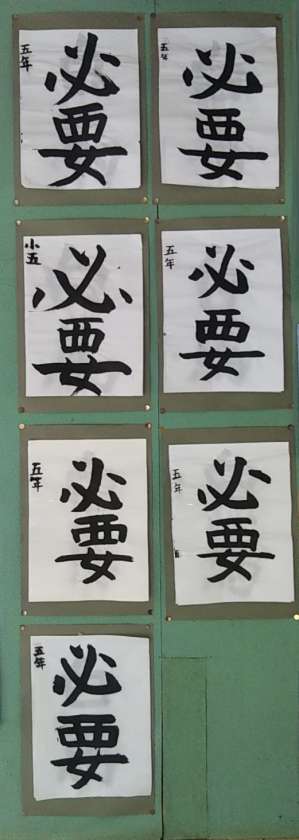 五年
必要
五年
必要
小五
必要
五年
必要
五年
必要
五年
必要
五年
必要